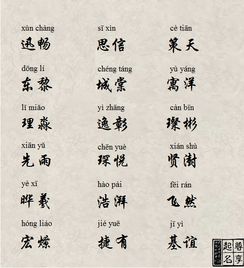 xùn chàng sī xìn cè tiān
迅畅 思信 策天
dōng lí chéng táng yù yáng
东黎 城棠 寓洋
lǐ miǎo yì zhāng càn bīn
理淼 逸彰 璨彬
xiān yǔ chēn yuè xián shù
先雨 琛悦 贤澍
yè xī hào pài fēi rán
晔羲 浩湃 飞然
hóng liáo jié yuě jī yì
宏嫽 捷有 基谊
起名